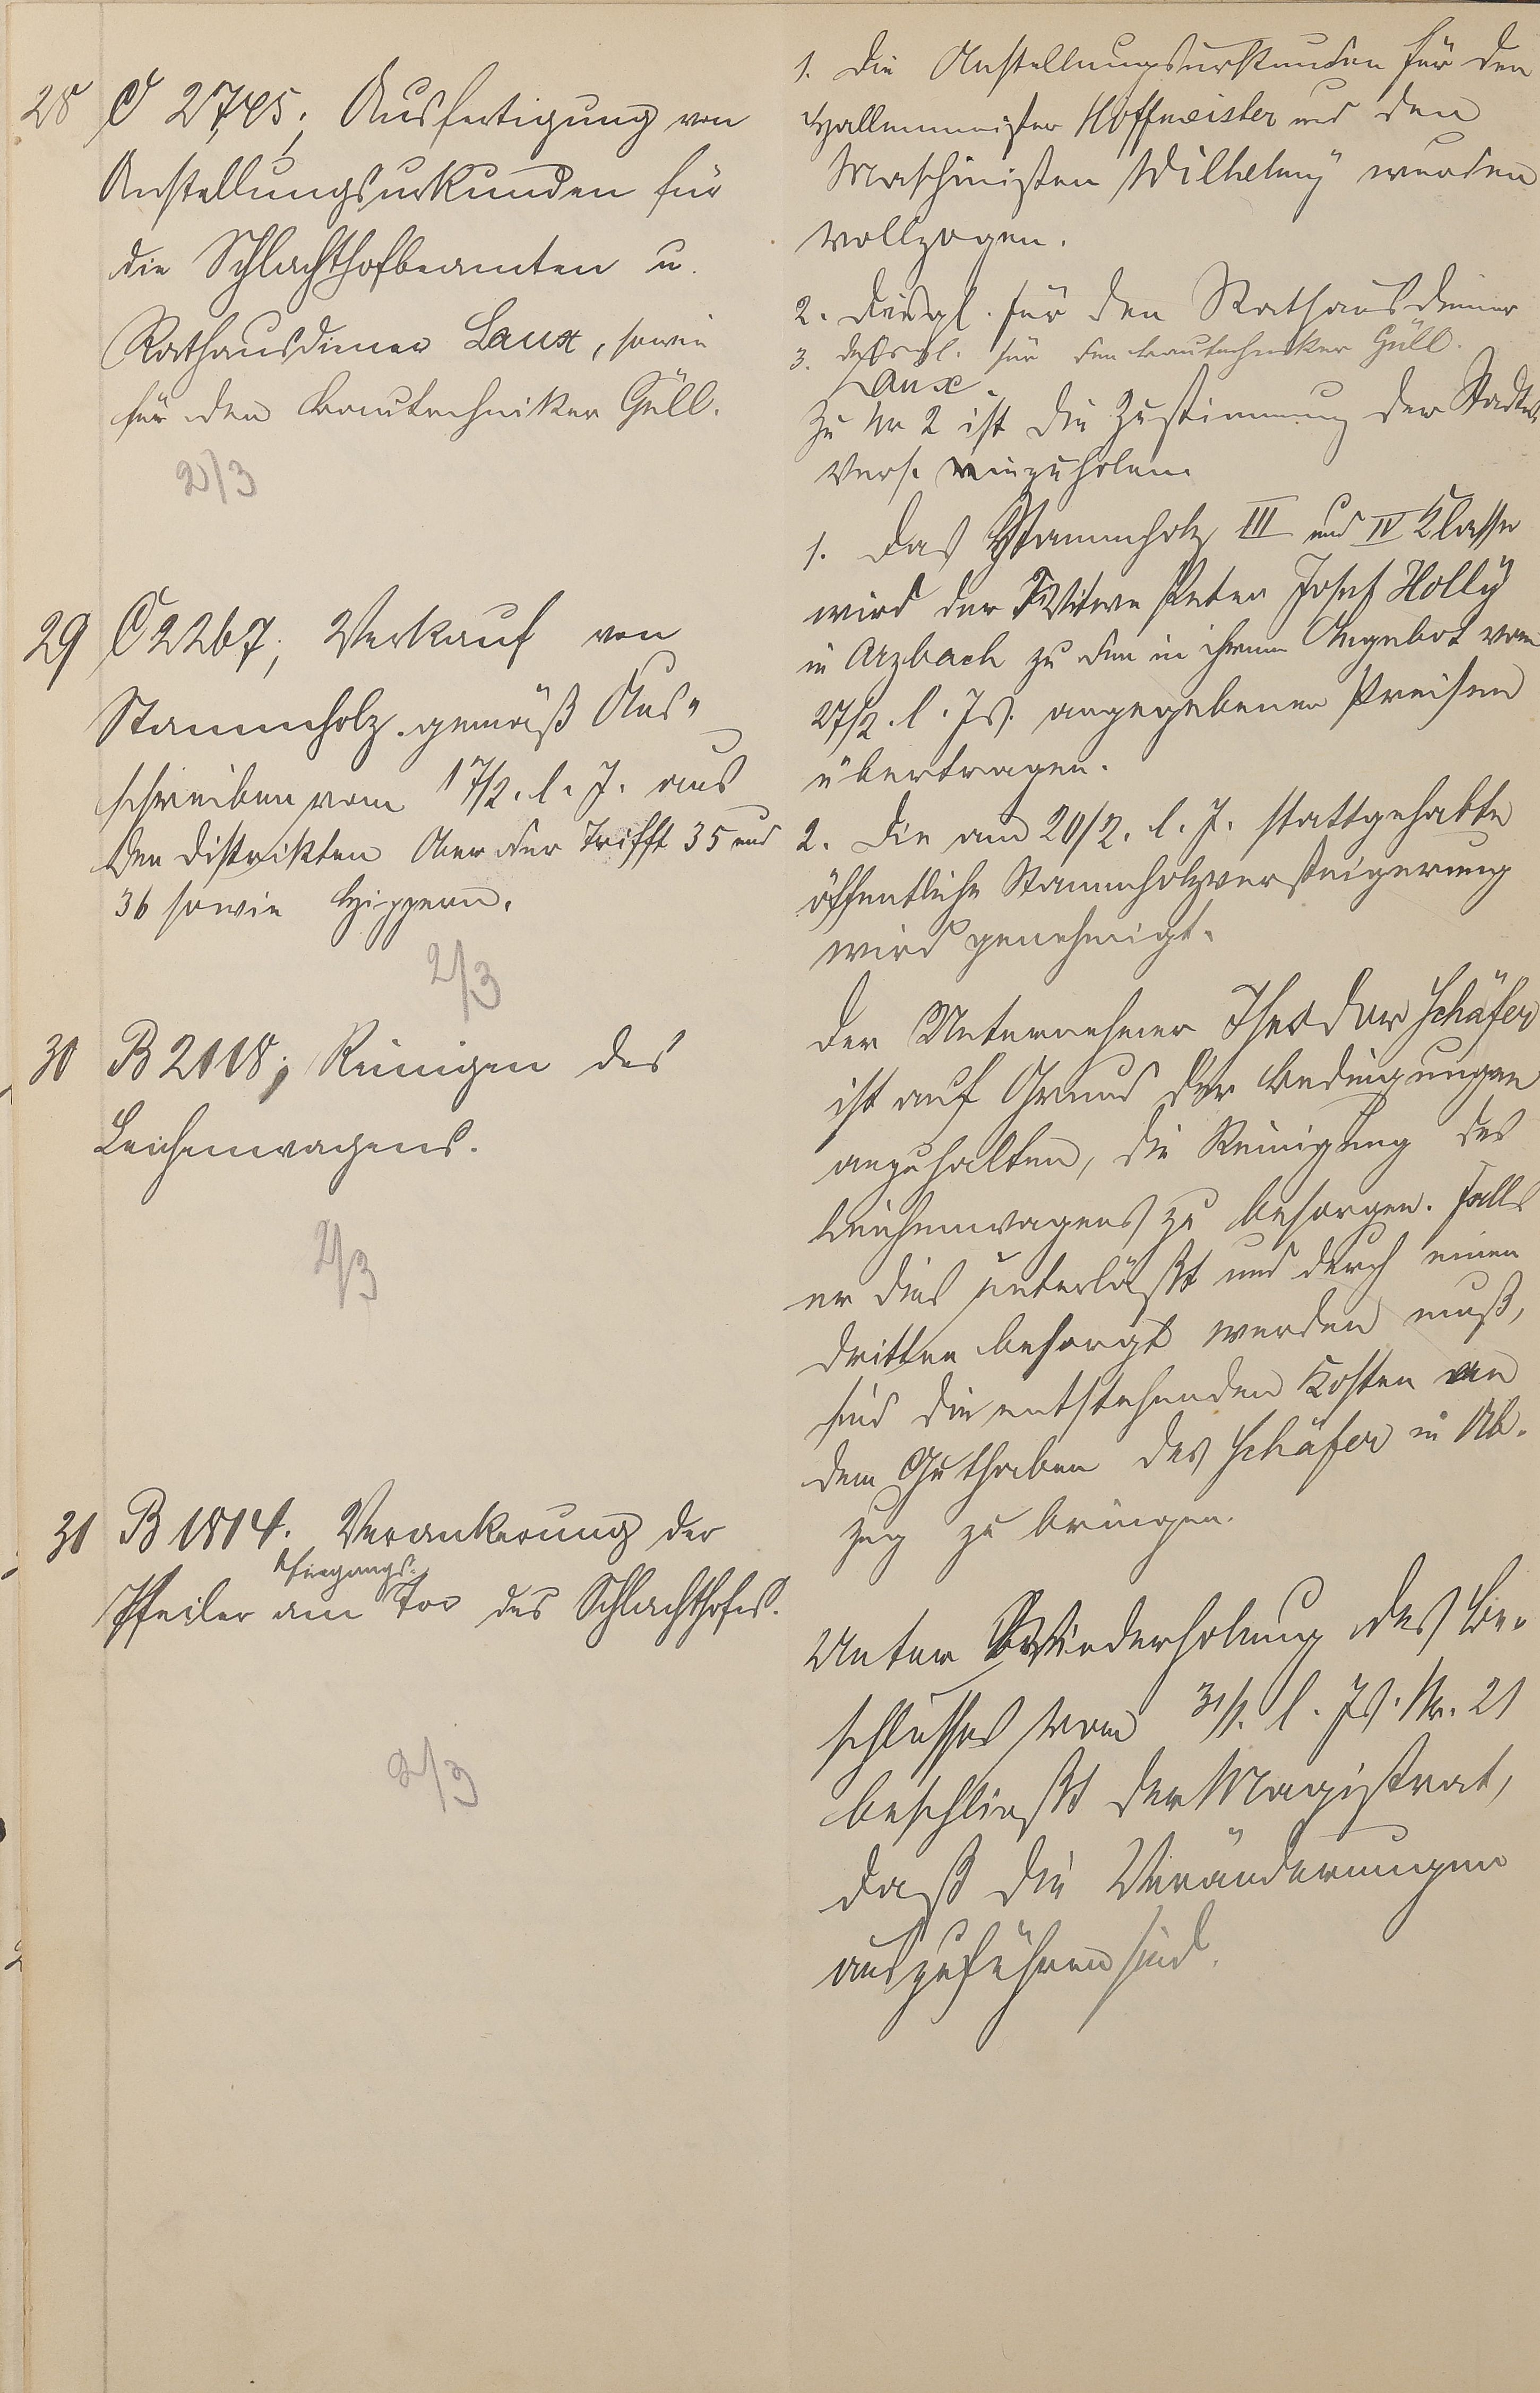 28 C 2745; Ausfertigung von
Anstellungsurkunden für
die Schlachthofbeamten u.
Rathausdiener Laux, sowie
für den Bautechniker Güll.
2/3
1. Die Anstellungsurkunden für den
Hallenmeister Hoffmeister und den
Maschinisten Wilhelmy wurden
vollzogen.
2. Desgl. für den Rathausdiener
Laux.
3. Desgl. für den Bautechniker Güll.
Zu Nr 2 ist die Zustimmung der Stadtv.
Vers. einzuholen.
29 C 2267; Verkauf von
Stammholz gemäß Aus-
schreiben vom 17/2. l. J. aus
den Distrikten An der Trifft 35 und
36 sowie
2/3
1. Das Stammholz III und IV Klasse
wird der Witwe Peter Josef Holly
in Arzbach zu den in ihrem Angebot vom
27/2. l. Js. angegebenen Preisen
übertragen.
2. Die am 20/2. l. J. stattgehabte
öffentliche Stammholzversteigerung
wird genehmigt.
30 B 2118; Reinigen des
Leichenwagens.
2/3
Der Unternehmer Theodor Schäfer
ist auf Grund der Bedingungen
anzuhalten, die Reinigung des
Leichenwagens zu besorgen. Falls
er dies unterläßt und durch einen
Dritten besorgt werden muß,
sind die entstehenden Kosten an
dem Guthaben des Schäfer in Ab-
zug zu bringen.
31 B 1814. Verankerung der
Pfeiler am Eingangs-
Tor des Schlachthofes.
2/3
Unter Wiederholung des Be-
schlusses vom 31/1. l. Js. Nr. 21
beschließt der Magistrat,
daß die Veränderungen
auszuführen sind.